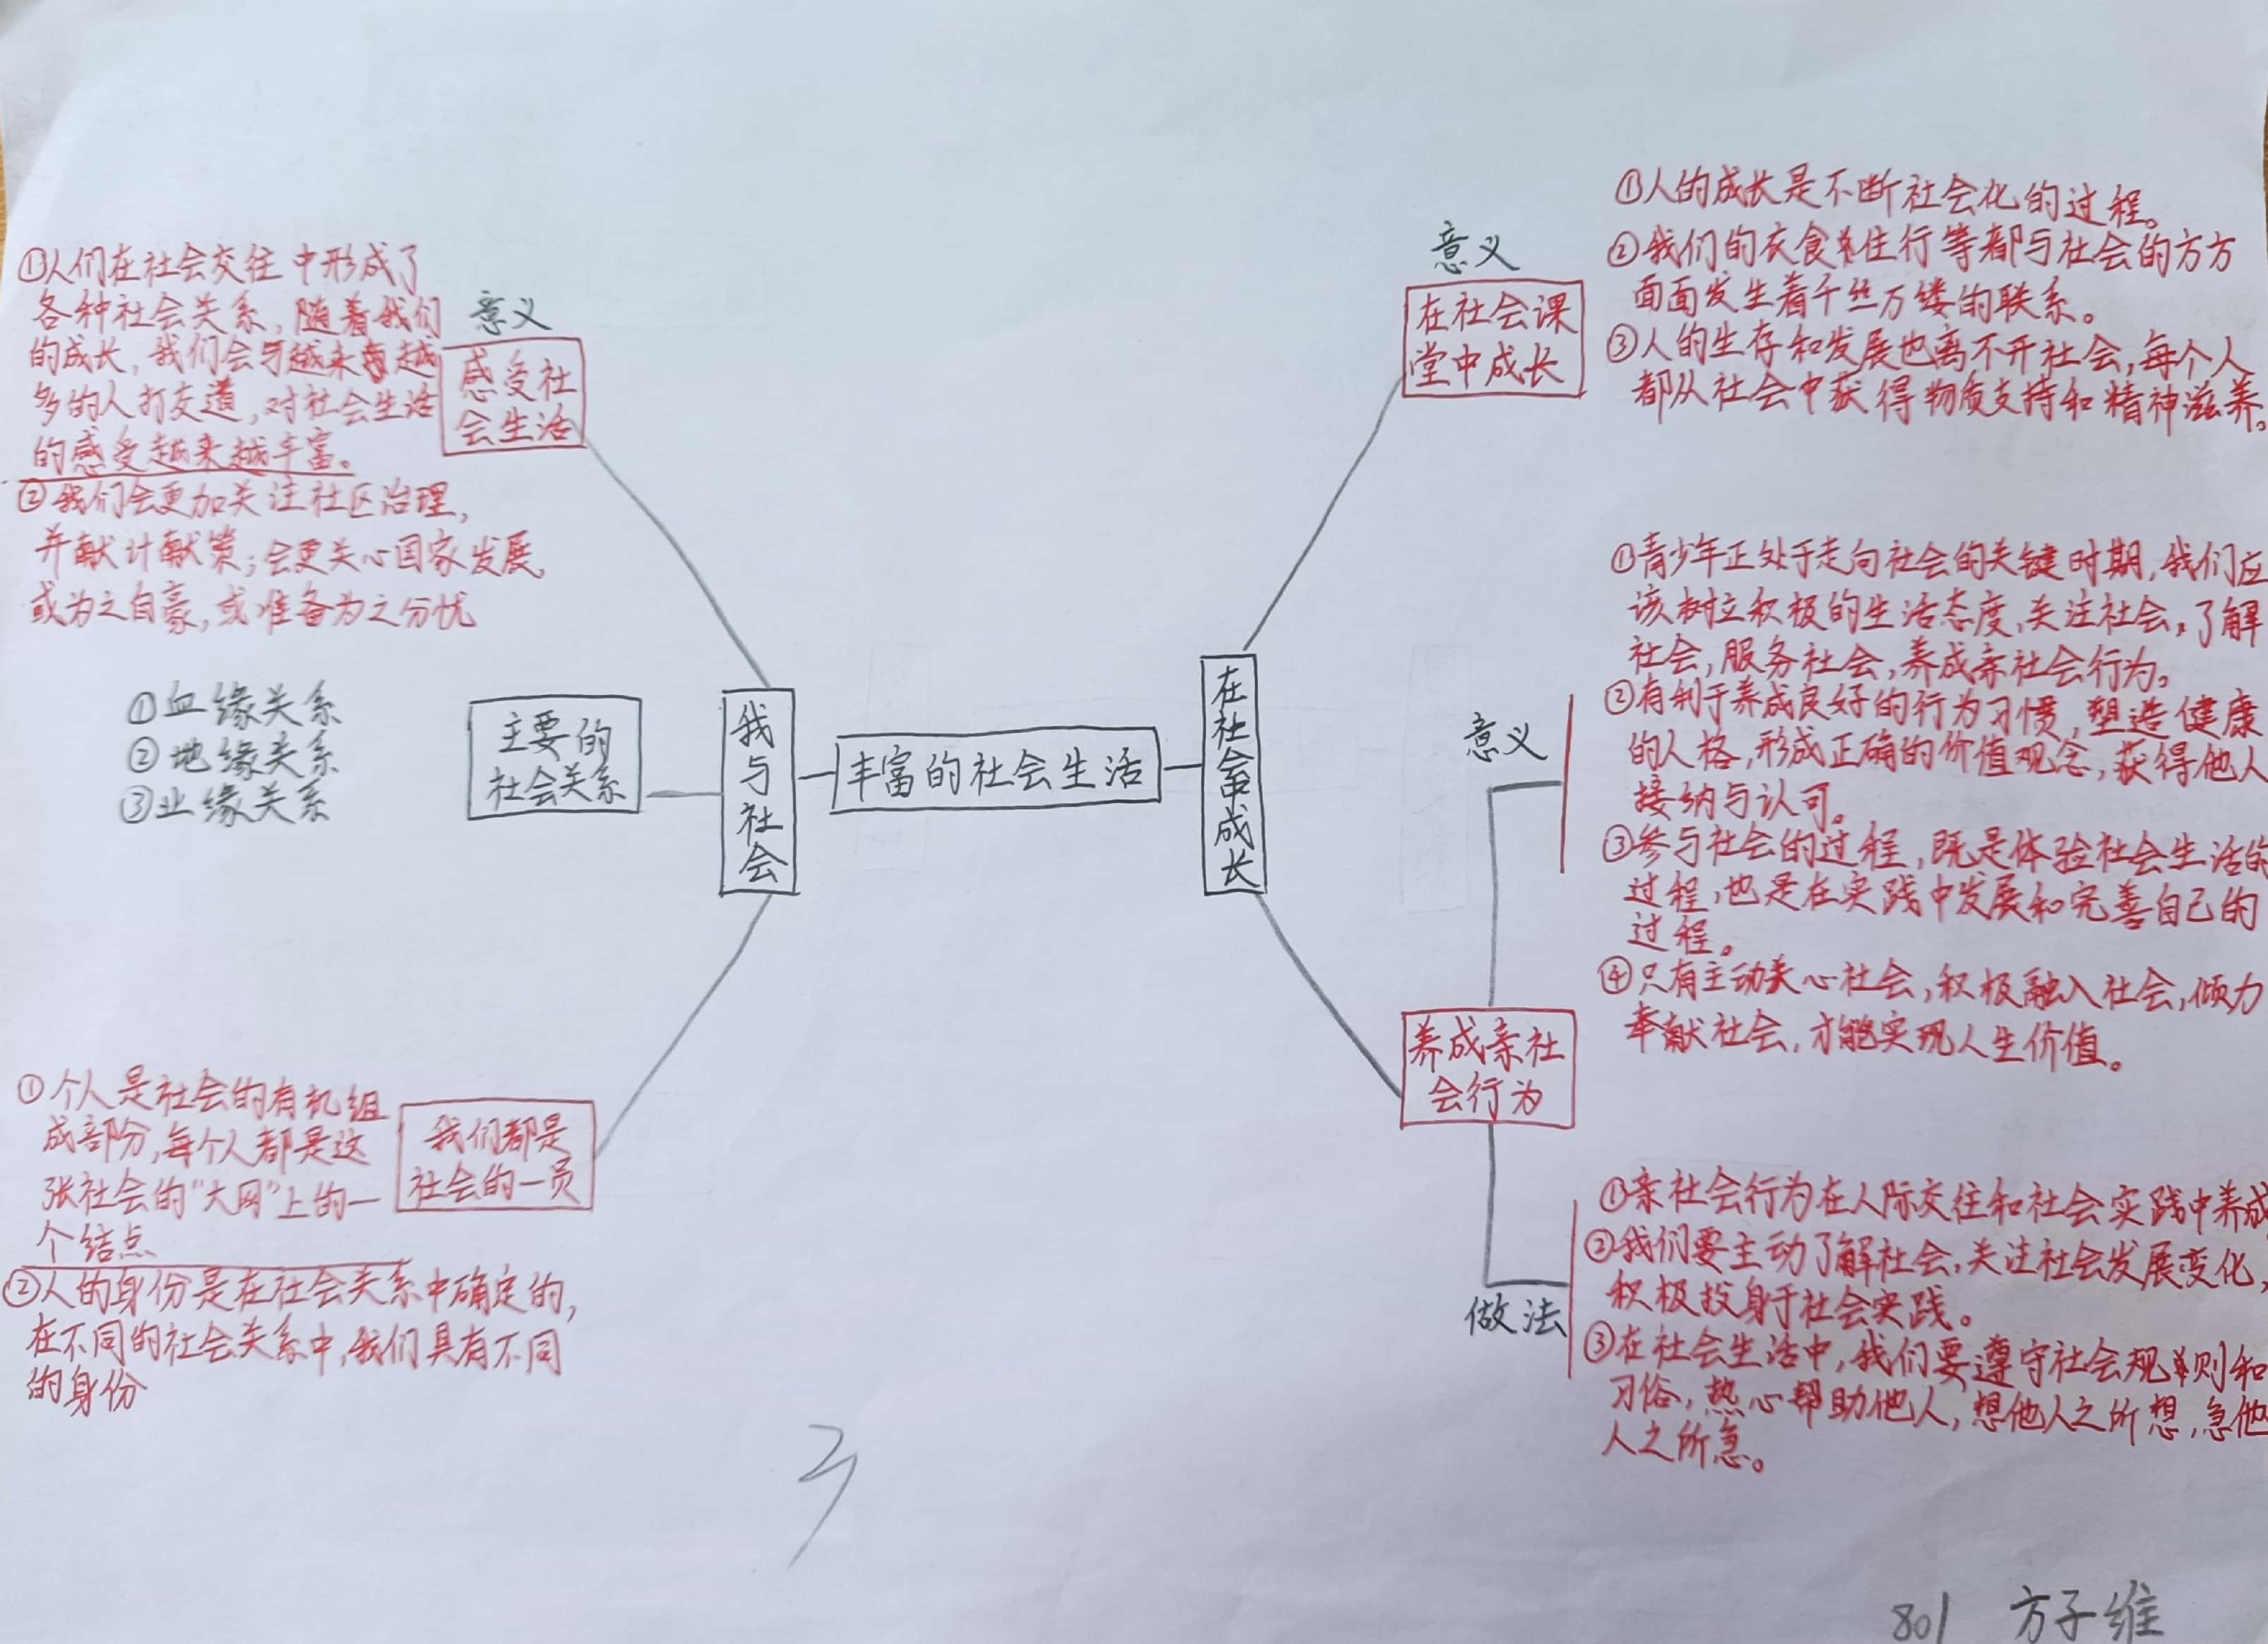 丰富的社会生活
我与社会
意义
感受社
会生活
①人们在社会交往中形成了
各种社会关系,随着我们
的成长,我们会与越来越
多的人打交道,对社会生活
的感受越来越丰富。
②我们会更加关注社区治理,
并献计献策;会更关心国家发展,
或为之自豪,或准备为之分忧
主要的
社会关系
①血缘关系
②地缘关系
③业缘关系
我们都是
社会的一员
①个人是社会的有机组
成部分,每个人都是这
张社会的“大网”上的一
个结点
②人的身份是在社会关系中确定的,
在不同的社会关系中,我们具有不同
的身份
在社会中成长
意义
在社会课
堂中成长
①人的成长是不断社会化的过程。
②我们的衣食住行等都与社会的方方
面面发生着千丝万缕的联系。
③人的生存和发展也离不开社会,每个人
都从社会中获得物质支持和精神滋养。
养成亲社
会行为
意义
①青少年正处于走向社会的关键时期,我们应
该树立积极的生活态度,关注社会,了解
社会,服务社会,养成亲社会行为。
②有利于养成良好的行为习惯,塑造健康
的人格,形成正确的价值观念,获得他人
接纳与认可。
③参与社会的过程,既是体验社会生活的
过程,也是在实践中发展和完善自己的
过程。
④只有主动关心社会,积极融入社会,倾力
奉献社会,才能实现人生价值。
做法
①亲社会行为在人际交往和社会实践中养成
②我们要主动了解社会,关注社会发展变化,
积极投身于社会实践。
③在社会生活中,我们要遵守社会规则和
习俗,热心帮助他人,想他人之所想,急他
人之所急。
801 方子维